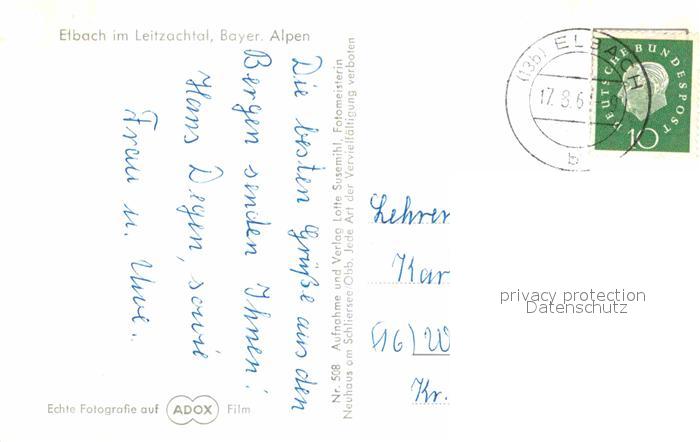 Elbach im Leitzachtal, Bayer. Alpen
Die besten Grüße aus den
Bergen senden Ihnen!
Hans Degen, sowie
Frau u. Uwe.
Nr. 508 Aufnahme und Verlag Lotte Susemihl, Fotomeisterin
Neuhaus am Schliersee/Obb. Jede Art der Vervielfältigung verboten
Echte Fotografie auf ADOX Film
(13b) ELBACH
17. 8. 6
b
DEUTSCHE BUNDESPOST
10
Lehrer
Kar
(16) W
Kr.
privacy protection
Datenschutz